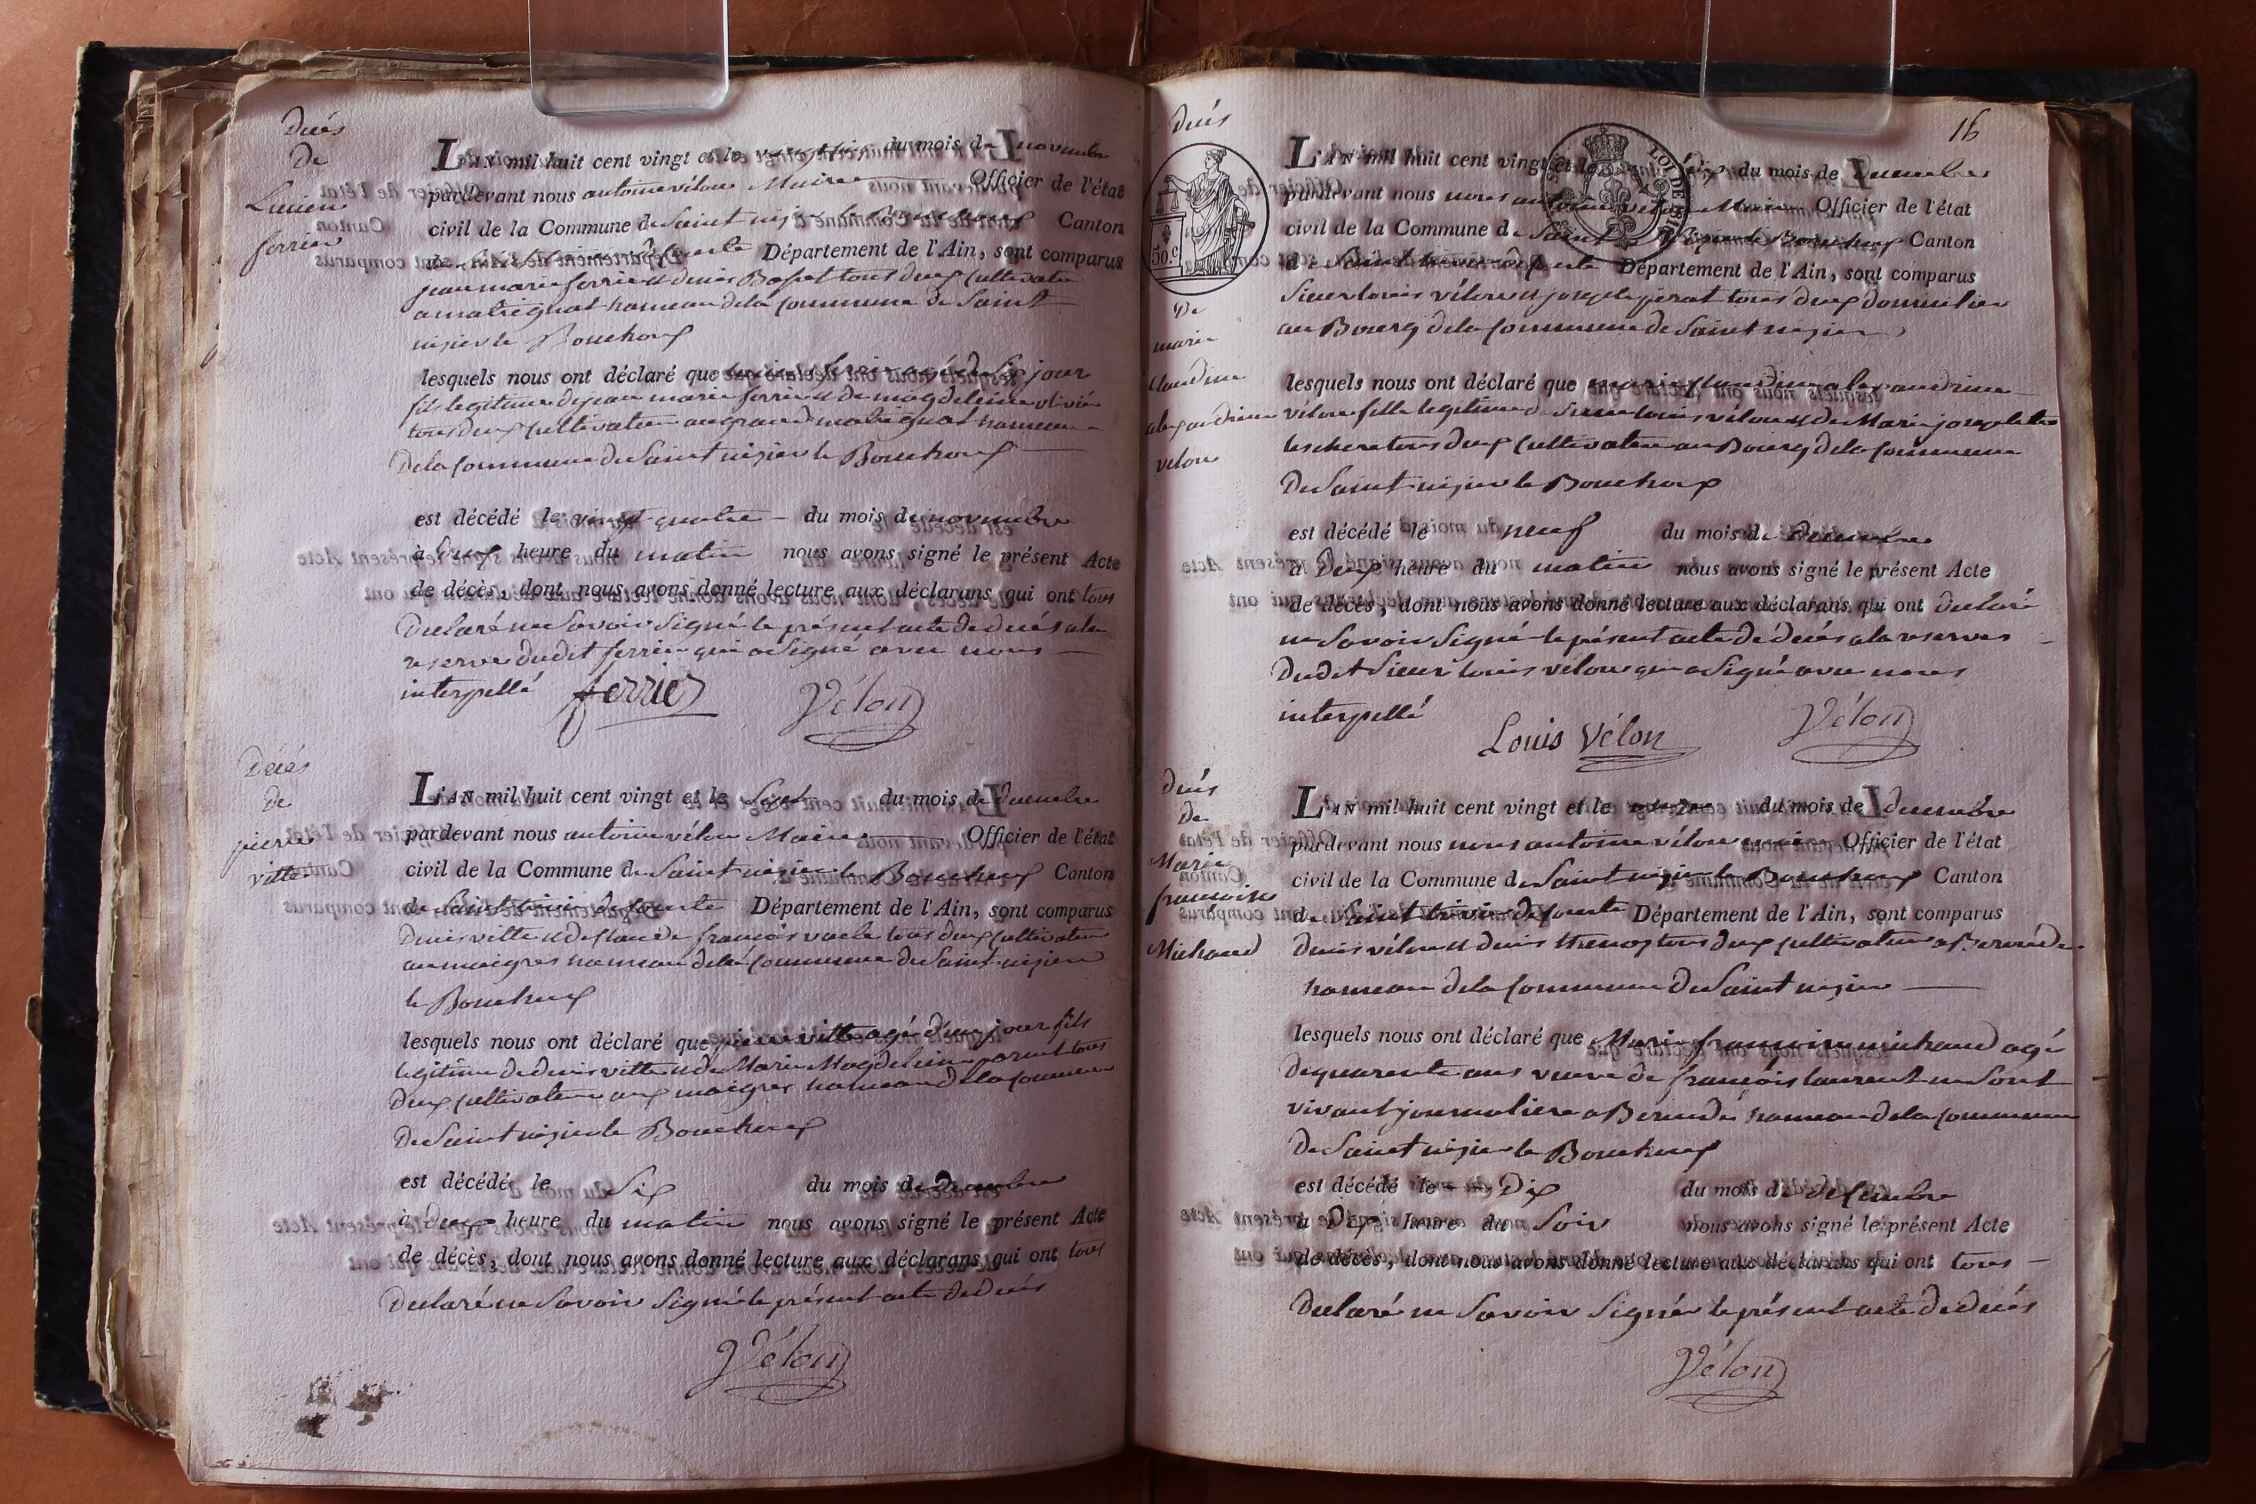 Décés
De
Lucien
ferrier
L'AN mil huit cent vingt et le du mois de novembre
pardevant nous antoine vélon Maire Officier de l'état
civil de la Commune de Saint nizier le Bouchoux Canton
de Département de l'Ain, sont comparus
jean marie ferrier et denis tous deux cultivateur
a hameau dela commune de Saint
nizier le Bouchoux
lesquels nous ont déclaré que jour
fils legitime de jean marie ferrier et de magdeleine
tous deux cultivateur au grand hameau
Dela commune de Saint nizier le Bouchoux
est décédé le vingt quatre du mois de novembre
à Deux heure du matin nous avons signé le présent Acte
de décès, dont nous avons donné lecture aux déclarans qui ont tous
Declaré ne Savoir Signé le présent acte de decés ala
reserve dudit ferrier qui a Signé avec nous
interpellé ferrier Vélon
Décés
de
pierre
ville
L'AN mil huit cent vingt et le Sept du mois de decembre
pardevant nous antoine vélon Maire Officier de l'état
civil de la Commune de Saint nizier le Bouchoux Canton
de Saint trivier de courte Département de l'Ain, sont comparus
Denis ville et de claude françois tous deux cultivateur
au maigres hameau dela commune de Saint nizier
le Bouchoux
lesquels nous ont déclaré que pierre ville agé d'un jour fils
legitime de denis ville et de Marie Magdeleine tous
Deux cultivateur aux maigres hameau dela commune
De Saint nizier le Bouchoux
est décédé le Six du mois de Decembre
à Deux heure du matin nous avons signé le présent Acte
de décès, dont nous avons donné lecture aux déclarans qui ont tous
Declaré ne Savoir Signé le présent acte de decés
Vélon
16
Decés
50 c
LOI DE 1816
De
marie
claudine
alexandrine
velon
L'AN mil huit cent vingt et le dix du mois de Decembre
pardevant nous nous antoine velon Maire Officier de l'état
civil de la Commune de Saint Nizier le Bouchoux Canton
de Saint trivier de courte Département de l'Ain, sont comparus
Sieur louis vélon et joseph tous deux domicilier
au Bourg dela commune de Saint nizier
lesquels nous ont déclaré que marie claudine alexandrine
vélon fille legitime de Sieur louis vélon et de Marie josephte
tous deux cultivateur au Bourg dela commune
De Saint nizier le Bouchoux
est décédé le neuf du mois de Decembre
à Deux heure du matin nous avons signé le présent Acte
de décès, dont nous avons donné lecture aux déclarans qui ont declaré
ne Savoir Signé le présent acte de décés ala reserves
Dudit Sieur louis velon qui a Signé avec nous
interpellé Louis Vélon Vélon
Decés
de
Marie
francoise
Michaud
L'AN mil huit cent vingt et le onze du mois de decembre
pardevant nous nous antoine vélon maire Officier de l'état
civil de la Commune de Saint nizier le Bouchoux Canton
de Saint trivier de courte Département de l'Ain, sont comparus
denis vélon et denis tous deux cultivateur a
hameau dela commune De Saint nizier
lesquels nous ont déclaré que Marie francoise michaud agé
De quarente ans veuve de françois laurent
vivant journaliere a hameau dela commune
De Saint nizier le Bouchoux
est décédé le Dix du mois de decembre
à Dix heure du Soir nous avons signé le présent Acte
de décès, dont nous avons donné lecture aux déclarans qui ont tous
Declaré ne Savoir Signér le présent acte de decés
Vélon